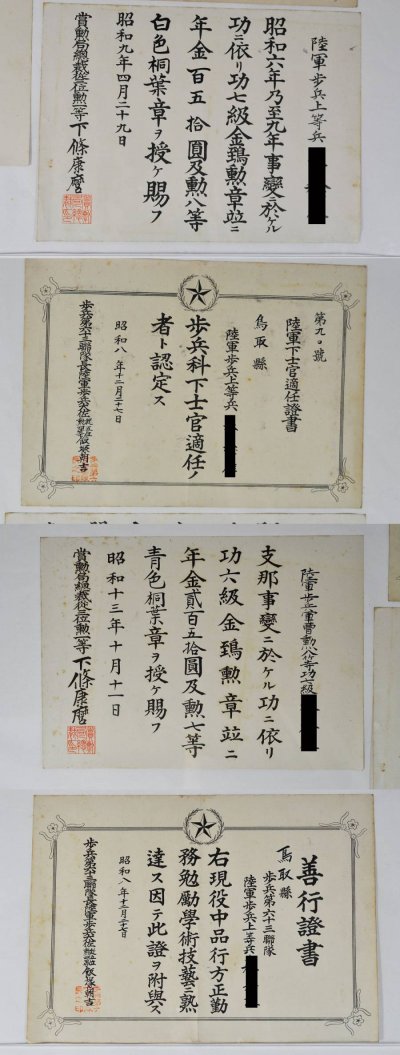 陸軍歩兵上等兵
昭和六年乃至九年事變ニ於ケル
功ニ依リ功七級金鵄勲章竝ニ
年金百五拾圓及勲八等
白色桐葉章ヲ授ケ賜フ
昭和九年四月二十九日
賞勲局總裁從三位勲一等下條康麿
第九〇號
陸軍下士官適任證書
鳥取縣
陸軍歩兵上等兵
歩兵科下士官適任ノ
者ト認定ス
昭和八年十二月二十七日
歩兵第六十三聯隊長陸軍歩兵大佐
飯塚朝吉
陸軍歩兵軍曹勲八等功七級
支那事變ニ於ケル功ニ依リ
功六級金鵄勲章竝ニ
年金貳百五拾圓及勲七等
青色桐葉章ヲ授ケ賜フ
昭和十三年十月十一日
賞勲局總裁從三位勲一等下條康麿
善行證書
鳥取縣
歩兵第六十三聯隊
陸軍歩兵上等兵
右現役中品行方正勤
務勉勵學術技藝ニ熟
達ス因テ此證ヲ附與ス
昭和八年十二月二十七日
歩兵第六十三聯隊長陸軍歩兵大佐
飯塚朝吉